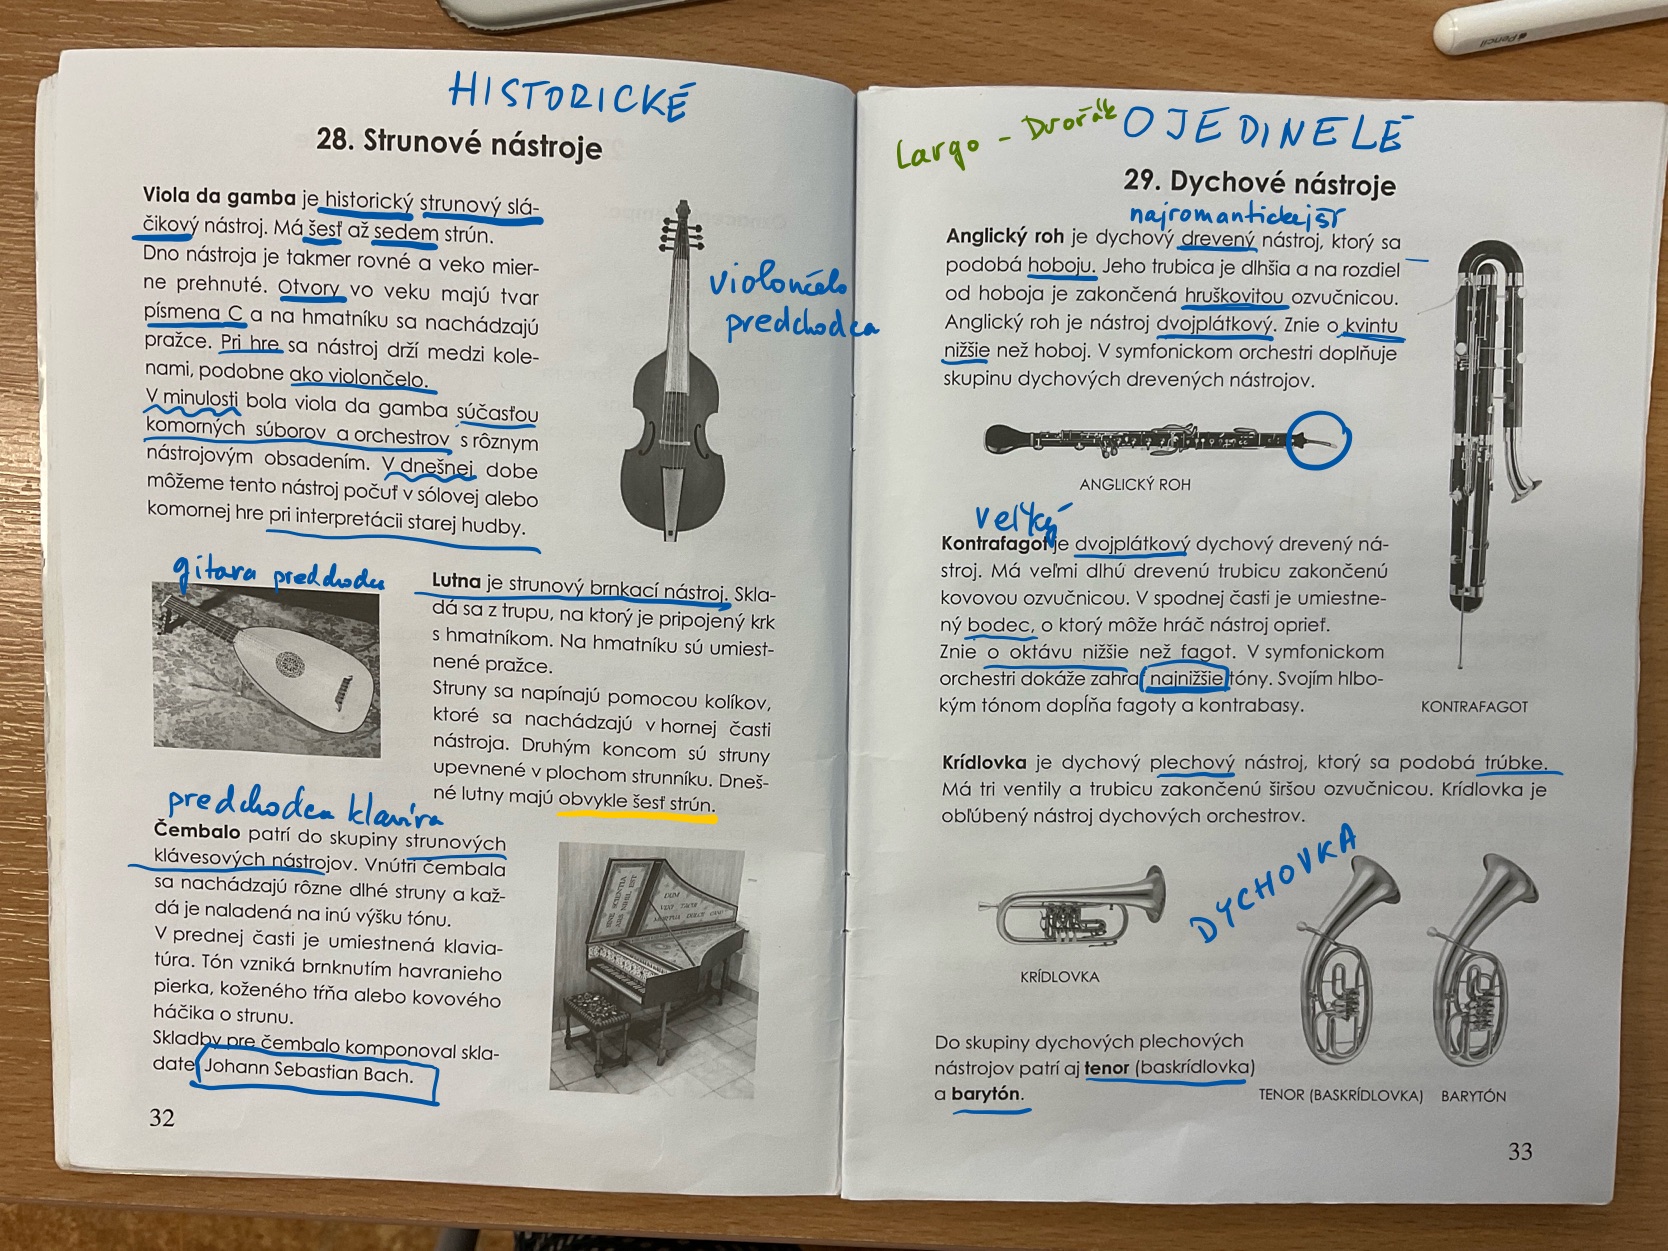 Pencil
HISTORICKÉ
28. Strunové nástroje
Viola da gamba je historický strunový slá-
čikový nástroj. Má šesť až sedem strún.
Dno nástroja je takmer rovné a veko mier-
ne prehnuté. Otvory vo veku majú tvar
písmena C a na hmatníku sa nachádzajú
pražce. Pri hre sa nástroj drží medzi kole-
nami, podobne ako violončelo.
V minulosti bola viola da gamba súčasťou
komorných súborov a orchestrov s rôznym
nástrojovým obsadením. V dnešnej dobe
môžeme tento nástroj počuť v sólovej alebo
komornej hre pri interpretácii starej hudby.
violončelo
predchodca
gitara predchodca
Lutna je strunový brnkací nástroj. Skla-
dá sa z trupu, na ktorý je pripojený krk
s hmatníkom. Na hmatníku sú umiest-
nené pražce.
Struny sa napínajú pomocou kolíkov,
ktoré sa nachádzajú v hornej časti
nástroja. Druhým koncom sú struny
upevnené v plochom strunníku. Dneš-
né lutny majú obvykle šesť strún.
predchodca klavíra
Čembalo patrí do skupiny strunových
klávesových nástrojov. Vnútri čembala
sa nachádzajú rôzne dlhé struny a kaž-
dá je naladená na inú výšku tónu.
V prednej časti je umiestnená klavia-
túra. Tón vzniká brnknutím havranieho
pierka, koženého tŕňa alebo kovového
háčika o strunu.
Skladby pre čembalo komponoval skla-
dateľ Johann Sebastian Bach.
SINE SCIENTIA
ARS NIHIL EST
DUM
VIXI TACUI
MORTUA DULCE CANO
32
Largo - Dvořák
OJEDINELÉ
29. Dychové nástroje
najromantickejší
Anglický roh je dychový drevený nástroj, ktorý sa
podobá hoboju. Jeho trubica je dlhšia a na rozdiel
od hoboja je zakončená hruškovitou ozvučnicou.
Anglický roh je nástroj dvojplátkový. Znie o kvintu
nižšie než hoboj. V symfonickom orchestri doplňuje
skupinu dychových drevených nástrojov.
ANGLICKÝ ROH
veľký
Kontrafagot je dvojplátkový dychový drevený ná-
stroj. Má veľmi dlhú drevenú trubicu zakončenú
kovovou ozvučnicou. V spodnej časti je umiestne-
ný bodec, o ktorý môže hráč nástroj oprieť.
Znie o oktávu nižšie než fagot. V symfonickom
orchestri dokáže zahrať najnižšie tóny. Svojím hlbo-
kým tónom dopĺňa fagoty a kontrabasy.
KONTRAFAGOT
Krídlovka je dychový plechový nástroj, ktorý sa podobá trúbke.
Má tri ventily a trubicu zakončenú širšou ozvučnicou. Krídlovka je
obľúbený nástroj dychových orchestrov.
DYCHOVKA
KRÍDLOVKA
Do skupiny dychových plechových
nástrojov patrí aj tenor (baskrídlovka)
a barytón.
TENOR (BASKRÍDLOVKA)
BARYTÓN
33